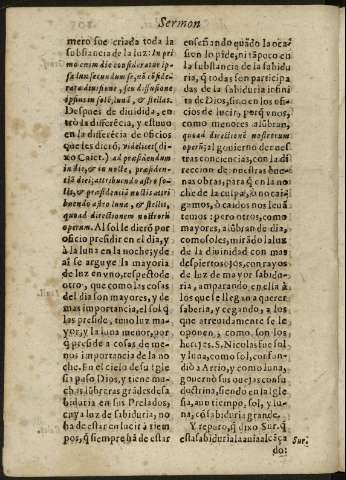 Sermon
mero fue criada toda la
substancia de la luz: In pri
mo enim die consideratur ip-
sa lux secundum se, nō cōside-
rata diuisione, seu diffusione
ipsius in solē, lunā, & stellas.
Despues de diuidida, en
trò la diferēcia, y estuuo
en la diferēcia de oficios
que les dierō, videlicet (di-
xo Caiet.) ad præsidendum
in die, & in nocte, præsidẽ-
tiã diei; attribuendo astro so-
lis, & præsidenciã noctis attri
buendo astro lunæ, & stellis,
quoad directionem nostrorū
operum. Al sol le dierõ por
oficio presidir en el dia, y
à la luna en la noche; y de
ai se arguye la mayoria
de luz en vno, respecto de
otro; que como las cosas
del dia son mayores, y de
mas importancia, el sol q̃
las preside, tuuo luz ma
yor; y la luna menor, por
q̃ preside a cosas de me-
nos importancia de la no
che. En el cielo de su Igle
sia puso Dios, y tiene mu-
chas lũbreras grãdes de sa
biduria en sus Prelados,
cuya luz de sabiduria, no
ha de estar en lucir à tiem
pos, q̃ siempre ha de estar
enseñando quãdo la oca
sion lo pide, ni tãpoco en
la substancia de la sabidu
ria, q̃ todas son participa
das de la sabiduria infini
ta de Dios, sino en los ofi-
cios de lucir; porq̃ vnos,
como menores alũbran,
quoad directionē nostrorum
operū; al gouierno de nues
tras conciencias, con la di
reccion de nuestras bue-
nas obras, para q̃ en la no
che de la culpa, ò no cai-
gamos, ò caidos nos leuã
temos: pero otros, como
mayores, alũbran de dia,
como soles, mirãdo la luz
de la diuinidad con mas
despiertos ojos, con rayos
de luz de mayor sabidu-
ria, amparando en ella à
los que se llegan a querer
saberla, y cegando, a los
que atreuidamente se le
oponen, como son los
hereges. S. Nicolas fue sol
y luna, como sol, confun-
diò a Arrio, y como luna,
gouernò sus ouejas con su
doctrina, siendo en la Igle
sia, a un tiempo, sol, y lu-
na, cõ sabiduria grande.
Y reparo, q̃ dixo Sur. q̃
esta sabiduria la auia alcãça
Sur.
do: